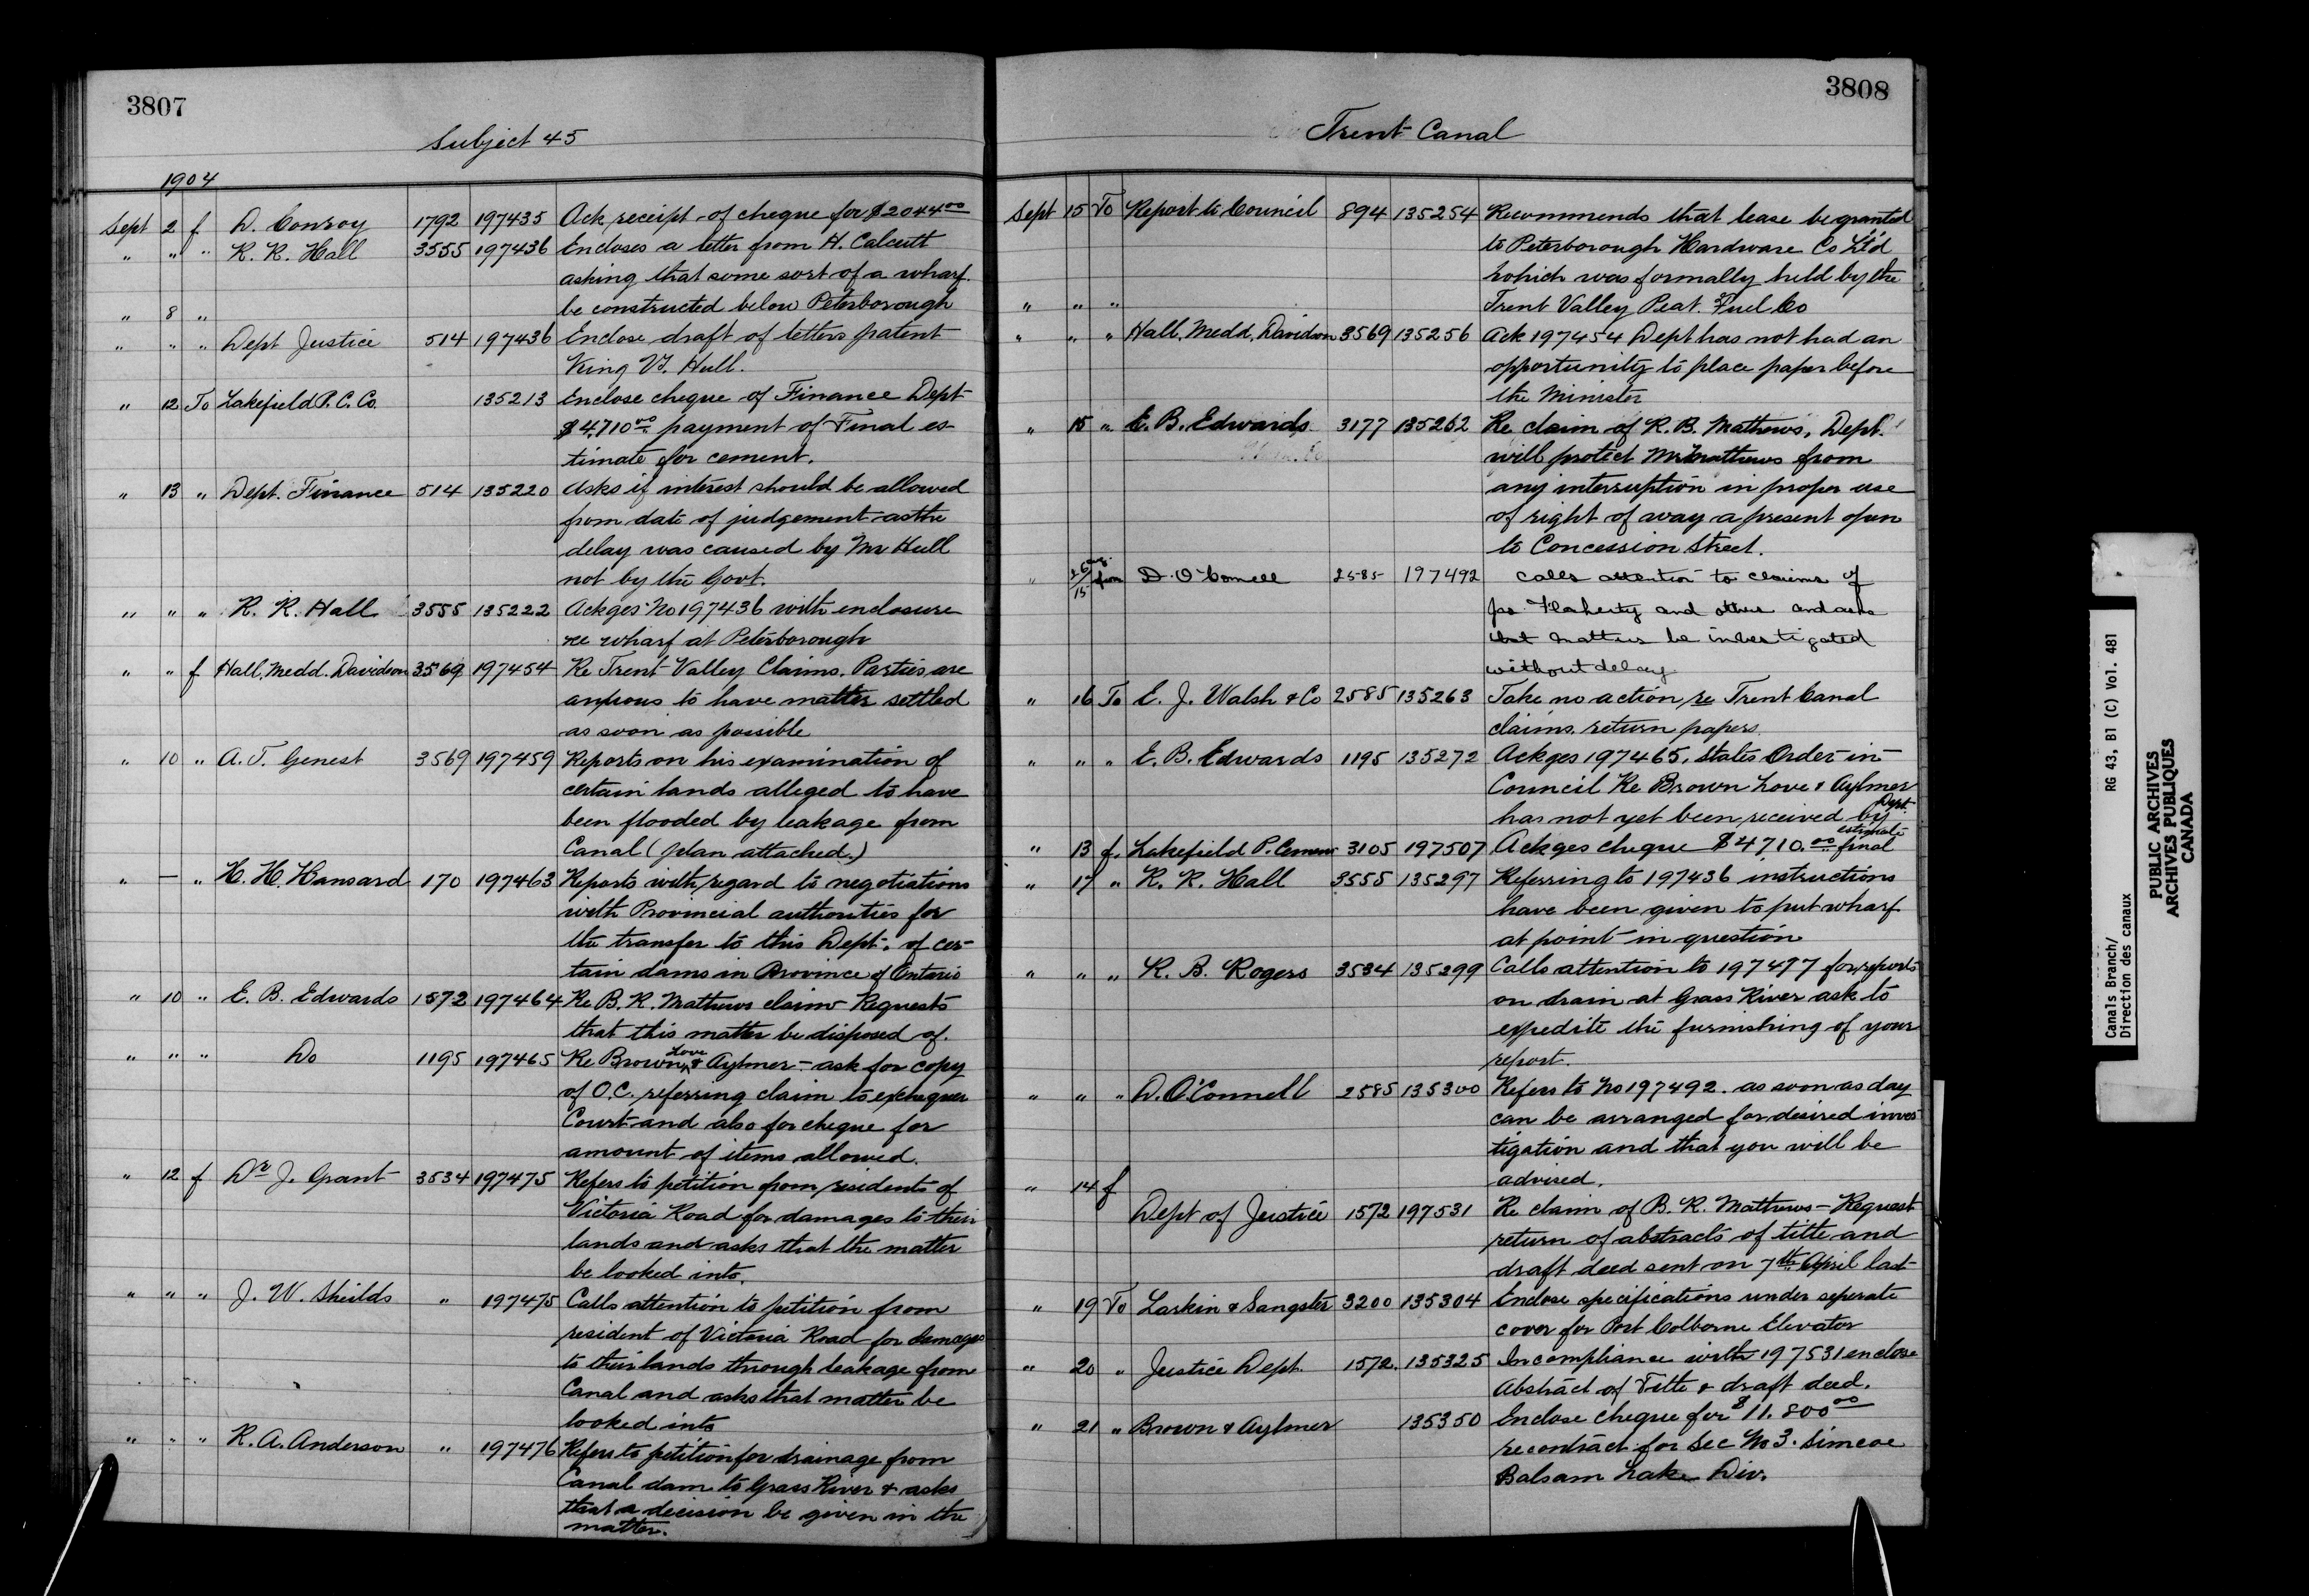 3807
Subject 45
1904
Sept 2 f D. Conroy 1792 197435 Ack receipt of cheque for $2044 00
" " " R. R. Hall 3555 197436 Encloses a letter from H. Calcutt
asking that some sort of a wharf
" 8 " be constructed below Peterborough
" " " Dept Justice 514 197436 Enclose draft of letters patent
King Vs. Hull.
" 12 To Lakefield P. C. Co. 135213 Enclose cheque of Finance Dept
$4,710 00 payment of Final es
timate for cement.
" 13 " Dept. Finance 514 135220 Asks if interest should be allowed
from date of judgement as the
delay was caused by Mr Hull
not by the Govt.
" " " R. R. Hall 3555 135222 Ackges No 197436 with enclosure
re wharf at Peterborough
" " f Hall, Medd. Davidson 3569 197454 Re Trent Valley Claims. Parties are
anxious to have matter settled
as soon as possible
" 10 " A. T. Genest 3569 197459 Reports on his examination of
certain lands alleged to have
been flooded by leakage from
Canal (plan attached.)
" — " H. H. Hansard 170 197463 Reports with regard to negotiations
with Provincial authorities for
the transfer to this Dept. of cer-
tain dams in Province of Ontario
" 10 " E. B. Edwards 1572 197464 Re B. R. Mathews claim Requests
that this matter be disposed of.
" " " Do 1195 197465 Re Brown Love & Aylmer - ask for copy
of O.C. referring claim to exchequer
Court and also for cheque for
amount of items allowed.
" 12 f Dr J. Grant 3534 197475 Refers to petition from residents of
Victoria Road for damages to their
lands and asks that the matter
be looked into.
" " " J. W. Shields " 197475 Calls attention to petition from
resident of Victoria Road for damages
to their lands through leakage from
Canal and asks that matter be
looked into
" " " R. A. Anderson " 197476 Refers to petition for drainage from
Canal dam to Grass River & asks
that a decision be given in the
matter.
3808
Trent Canal
Sept 15 To Report to Council 894 135254 Recommends that lease be granted
to Peterborough Hardware Co Lt'd
which was formally held by the
" " " Trent Valley Peat Fuel Co
" " " Hall, Medd, Davidson 3569 135256 Ack 197454 Dept has not had an
opportunity to place paper before
the Minister
" 15 " E. B. Edwards 3177 135262 Re claim of R. B. Mathews, Dept.
will protect Mr Mathews from
any interruption in proper use
of right of away a present open
to Concession Street.
" 26/15 aug. from D. O'Connell 2585 197492 Calls attention to claims of
Jno Flaherty and others and asks
that matters be investigated
without delay
" 16 To E. J. Walsh & Co 2585 135263 Take no action re Trent Canal
claims. return papers.
" " " E. B. Edwards 1195 135272 Ackges 197465, States Order-in-
Council Re Brown Love & Aylmer
has not yet been received by Dept.
" 13 f. Lakefield P. Cement 3105 197507 Ackges cheque $4,710.00 final estimate
" 17 " R. R. Hall 3555 135297 Referring to 197436 instructions
have been given to put wharf
at point in question
" " " R. B. Rogers 3534 135299 Calls attention to 197477 for reports
on drain at Grass River ask to
expedite the furnishing of your
report.
" " " D. O'Connell 2585 135300 Refers to No 197492. as soon as day
can be arranged for desired inves
tigation and that you will be
" 14 f advised.
Dept of Justice 1572 197531 Re claim of B. R. Mathews - Request
return of abstracts of title and
draft deed sent on 7th April last
" 19 To Larkin & Sangster 3200 135304 Enclose specifications under seperate
cover for Port Colborne Elevator
" 20 " Justice Dept. 1572. 135325 In compliance with 197531 enclose
Abstract of Title & draft deed.
" 21 " Brown & Aylmer 135350 Enclose cheque for $11.800 00
re contract for Sec No 3. Simcoe
Balsam Lake Div.
Canals Branch/ RG 43, B1 (C) Vol. 481
Direction des canaux
PUBLIC ARCHIVES
ARCHIVES PUBLIQUES
CANADA